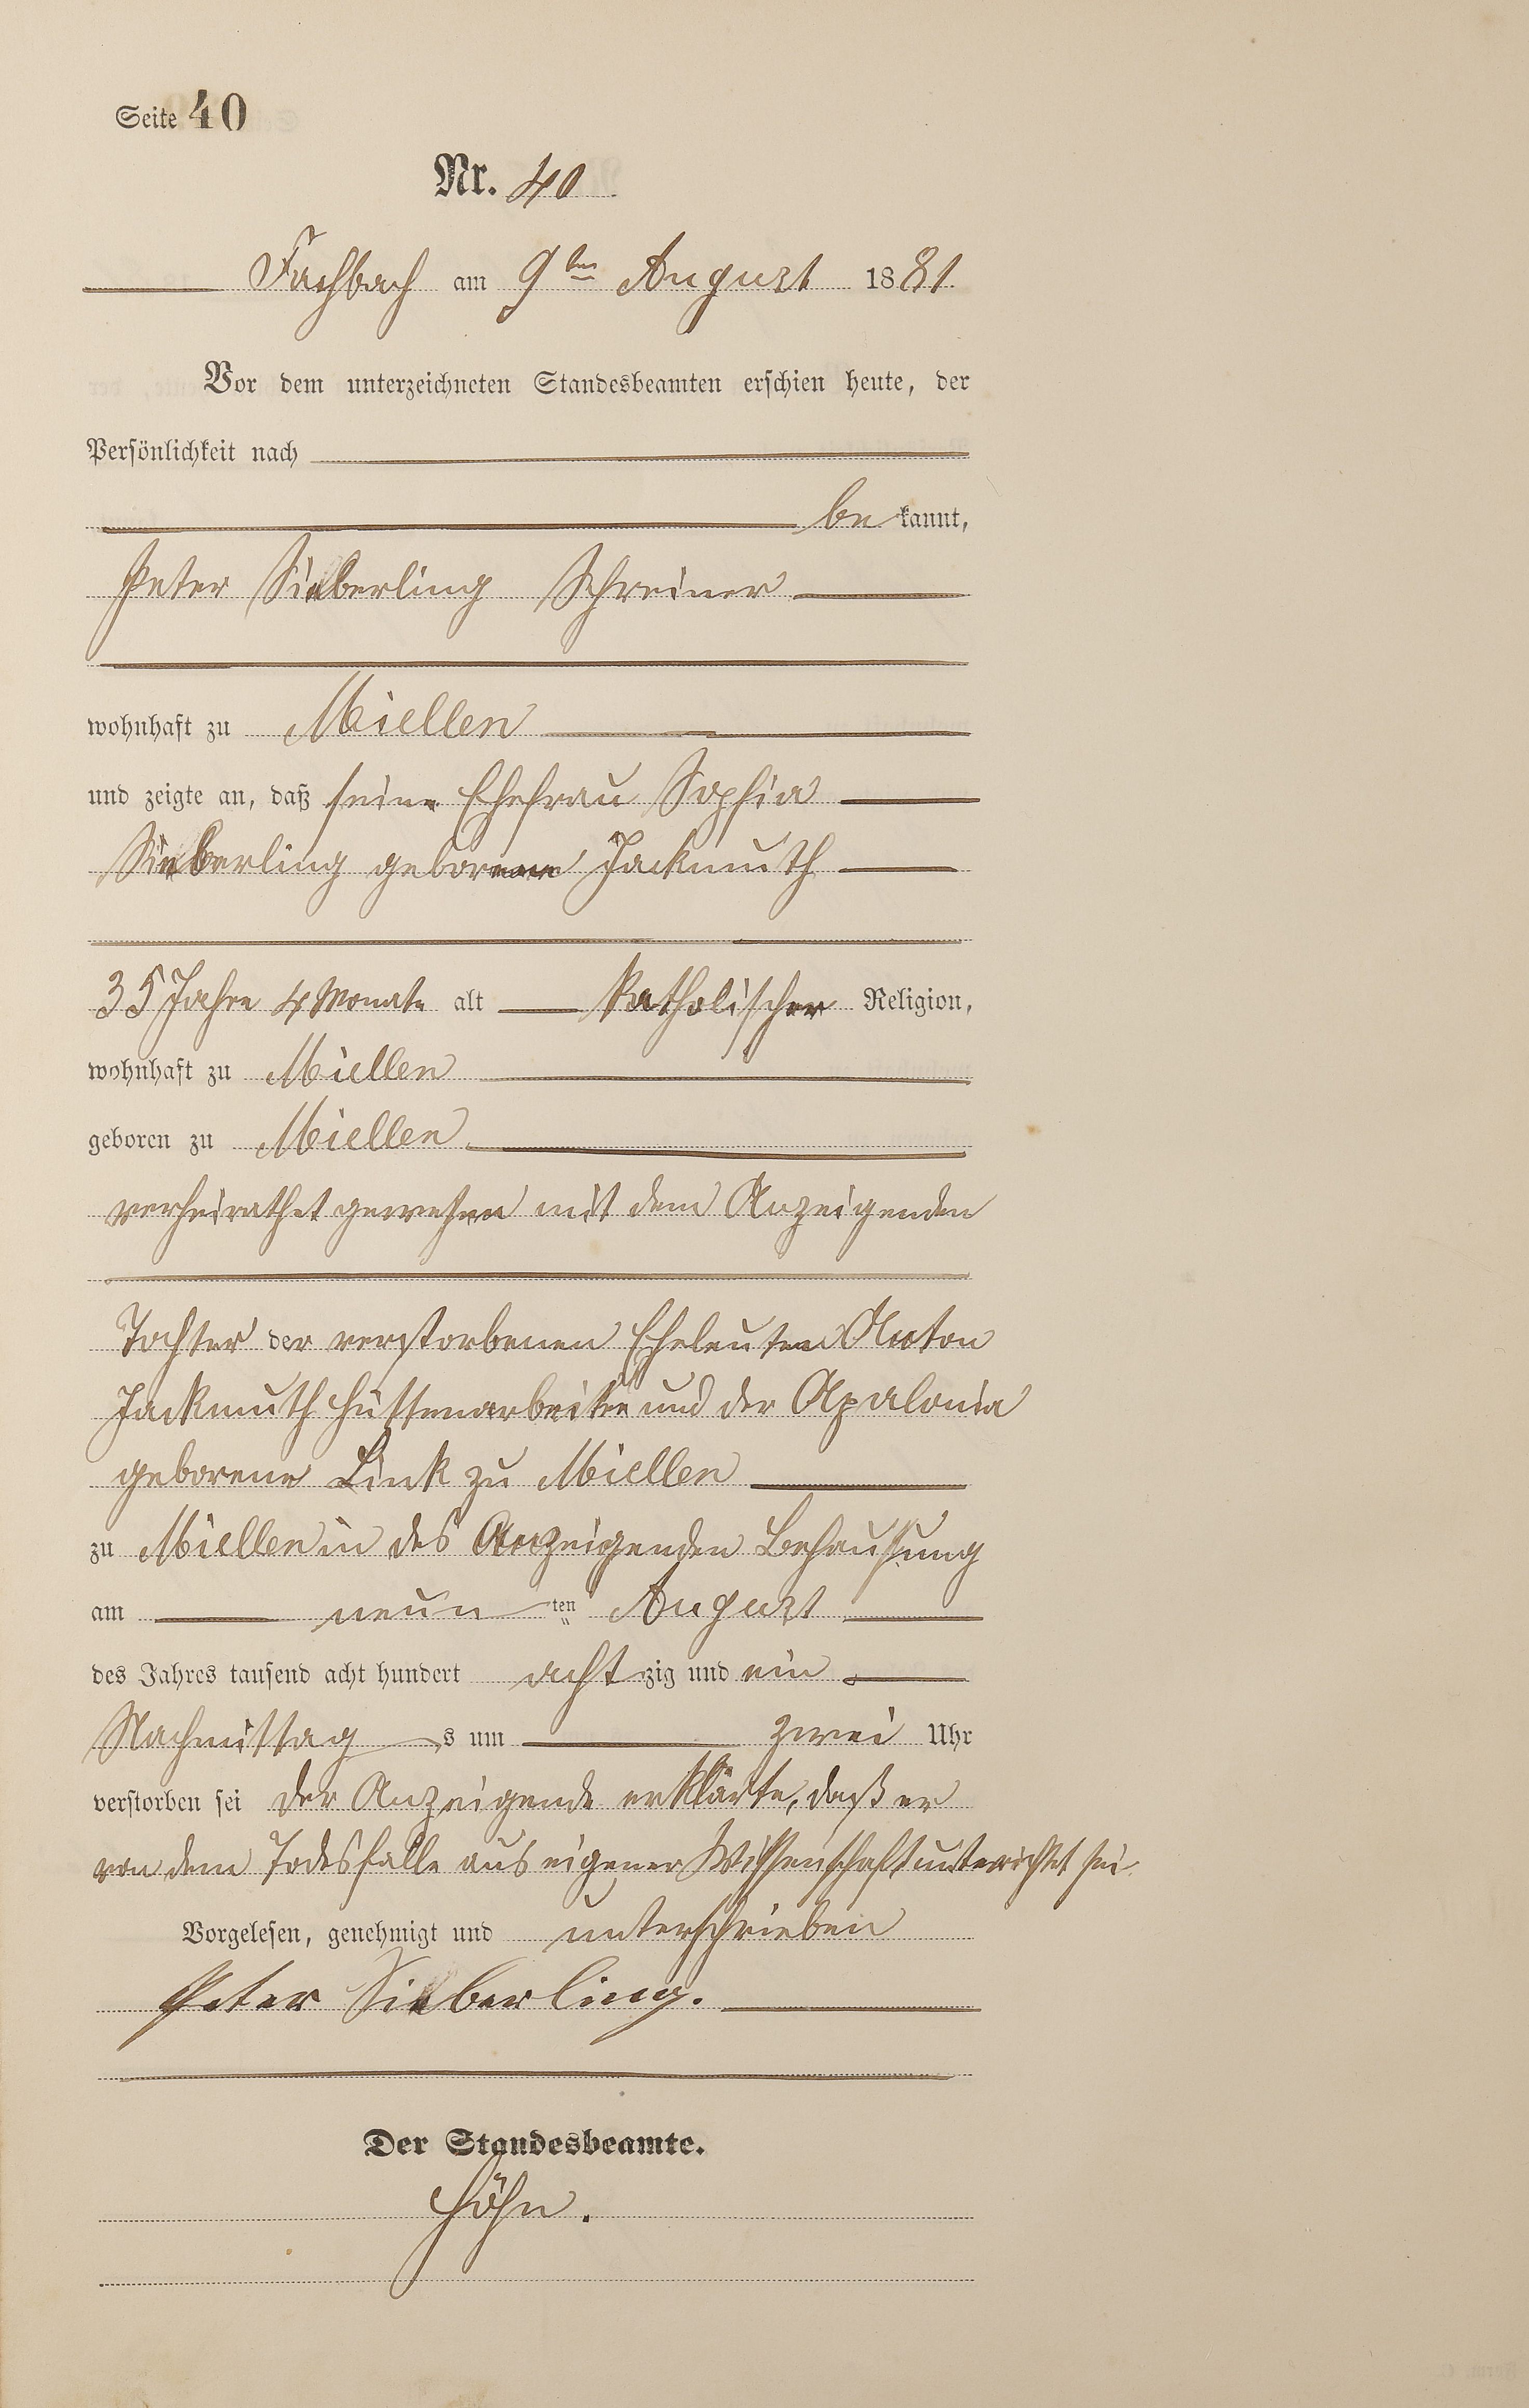 Seite 40
Nr. 40
Fachbach am 9ten August 1881.
Vor dem unterzeichneten Standesbeamten erschien heute, der
Persönlichkeit nach
bekannt,
Peter Sieberling Schreiner
wohnhaft zu Miellen
und zeigte an, daß seine Ehefrau Sophia
Sieberling geborene Jackmuth
35 Jahre 4 Monate alt katholischer Religion,
wohnhaft zu Miellen
geboren zu Miellen
verheirathet gewesen mit dem Anzeigenden
Tochter der verstorbenen Eheleuten Anton
Jackmuth Hüttenarbeiter und der Apalonia
geborene Link zu Miellen
zu Miellen in des Anzeigenden Behausung
am neunten August
des Jahres tausend acht hundert achtzig und ein
Nachmittags um zwei Uhr
verstorben sei der Anzeigende erklärte, daß er
von dem Todesfalle aus eigener Wissenschaft unterrichtet sei.
Vorgelesen, genehmigt und unterschrieben
Peter Sieberling.
Der Standesbeamte.
Höhn.